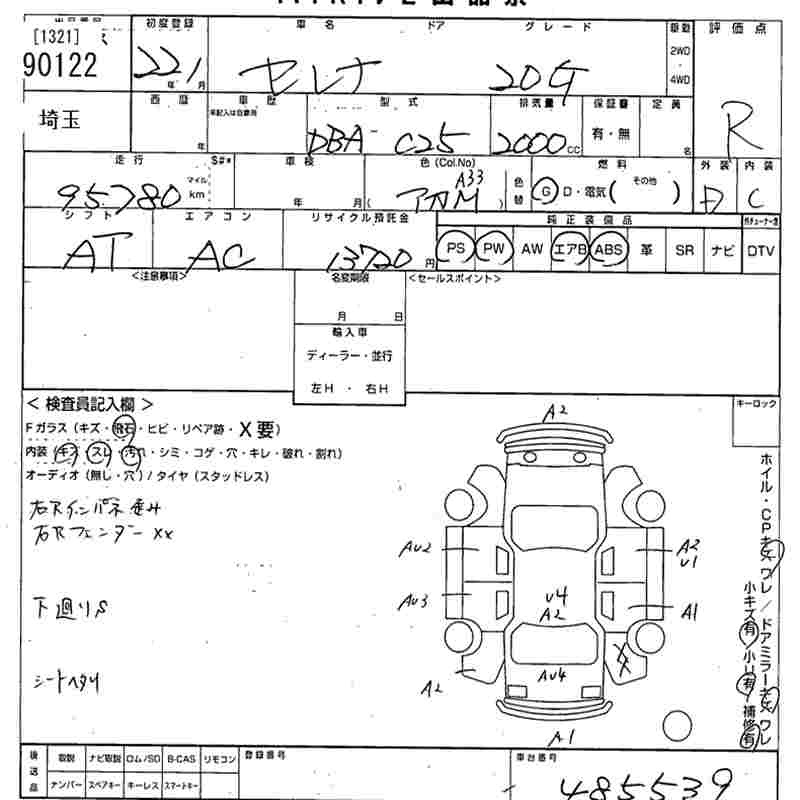 [1321]
90122
初度登録 車名 ドア グレード 駆動 評価点
22年1月 セレナ 20G 2WD
4WD
R
埼玉
西暦 車歴 型式 排気量 保証書 定員
年 未記入は自家用 DBA-C25 2000cc 有・無 名
走行 S#* 車検 色(Col.No) 燃料 外装 内装
95780 マイル km 年 月( アカM A33 ) 色替 G D・電気( その他 ) D C
シフト エアコン リサイクル預託金 純正装備品
AT AC 13720円 PS PW AW エアB ABS 革 SR ナビ DTV
<注意事項> 名変期限 <セールスポイント>
月 日
輸入車
ディーラー・並行
左H ・ 右H
<検査員記入欄> キーロック
Fガラス(キズ・飛石・ヒビ・リペア跡・X要)
内装(キズ・スレ・汚れ・シミ・コゲ・穴・キレ・破れ・割れ)
オーディオ(無し・穴)/タイヤ(スタッドレス)
右Rインパネ歪み
右Rフェンダーxx
下廻りS
シートヘタリ
A2
AU2 A2
U1
AU3 U4
A2 A1
A2 AU4 XX
A1
ホイル・CPキズワレ/ドアミラーキズワレ
小キズ有/小U有/補修有
後送品 取説 ナビ取説 ロム/SD B-CAS リモコン 登録番号 車台番号
ナンバー スペアキー キーレス スマートキー
485539